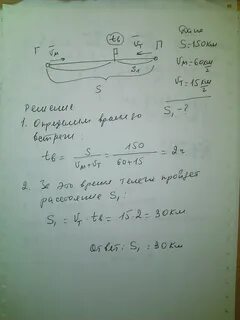 Дано
S=150км
Vм=60км/г
Vт=15км/г
S₁-?
Г Vм tв Vт П
S₁
S
Решение
1. Определим время до
встречи:
tв = S/(Vм+Vт) = 150/(60+15) = 2г
2. За это время телега пройдет
расстояние S₁:
S₁ = Vт · tв = 15·2 = 30км
Ответ: S₁ = 30км